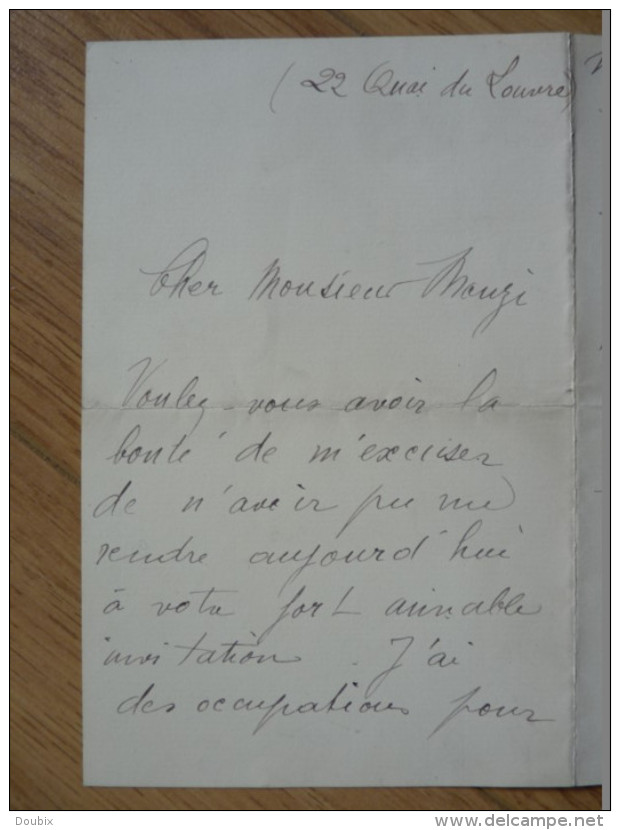 (22 Quai du Louvre)
Cher Monsieur Manzi
Voulez-vous avoir la
bonté de m'excuser
de n'avoir pu me
rendre aujourd'hui
à votre fort aimable
invitation. J'ai
des occupations pour
Doubix
www.delcampe.net